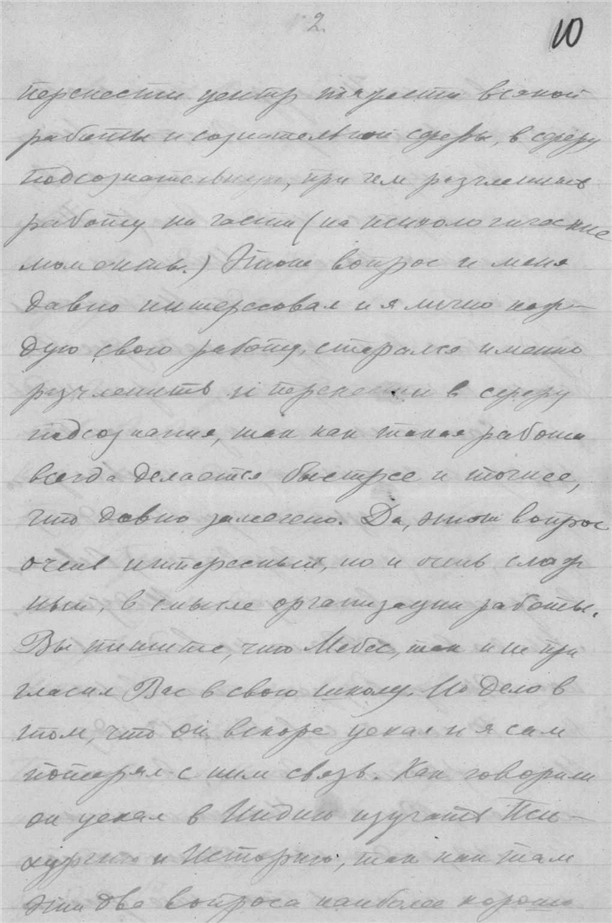 2.
10
перенести центр тяжести всякой
работы из сознательной сферы, в сферу
подсознательную, при чем разчленить
работу на части (на психологические
моменты.) Этот вопрос и меня
давно интересовал и я лично каж-
дую свою работу, старался именно
разчленить и перенести в сферу
подсознания, так как такая работа
всегда делается быстрее и точнее,
что давно замечено. Да, этот вопрос
очень интересный, но и очень слож
ный, в смысле организации работы.
Вы пишите, что Мебес, так и не при
гласил Вас в свою школу. Но дело в
том, что он вскоре уехал и я сам
потерял с ним связь. Как говорили
он уехал в Индию изучать Пси-
хургию и Историю, так как там
эти два вопроса наиболее хорошо